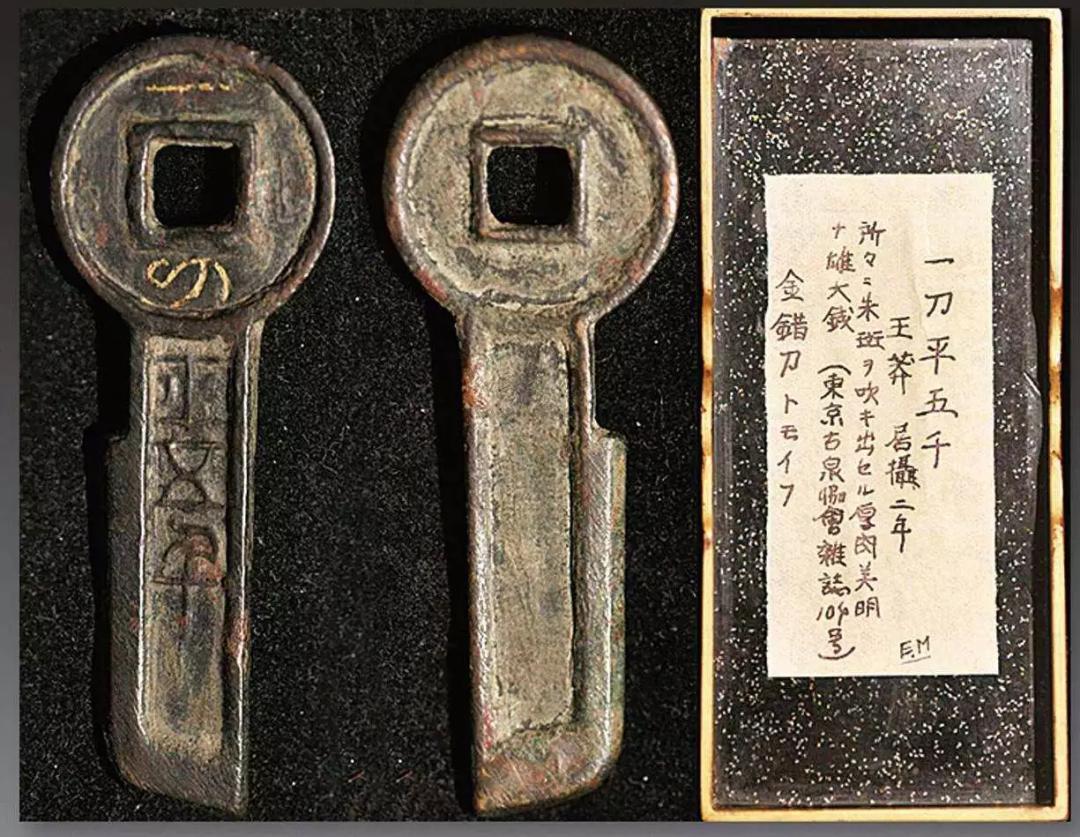 一
刀
平五千
一刀平五千
王莽 居攝二年
所々ニ朱斑ヲ吹キ出セル厚肉美明
ナ雄大銭 (東京古泉協會雜誌 号)
金錯刀トモイフ
E.M